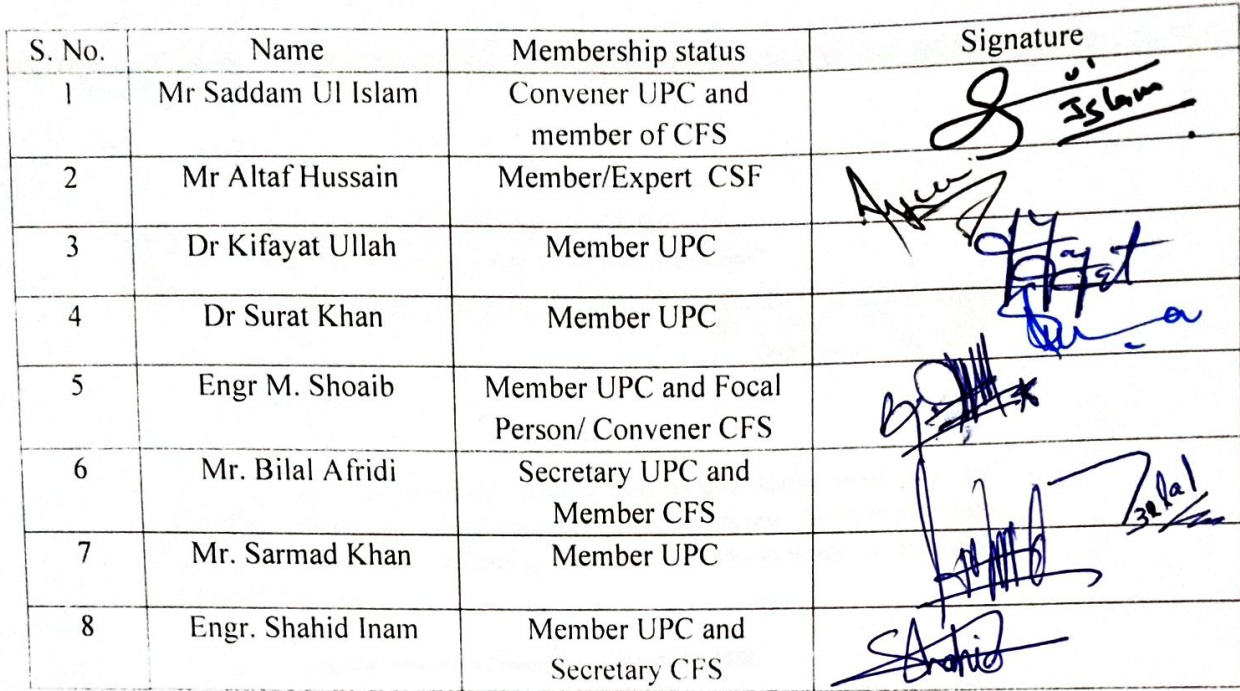 S. No. Name Membership status Signature
1 Mr Saddam Ul Islam Convener UPC and
member of CFS
Ul
Islam
2 Mr Altaf Hussain Member/Expert CSF
3 Dr Kifayat Ullah Member UPC
4 Dr Surat Khan Member UPC
5 Engr M. Shoaib Member UPC and Focal
Person/ Convener CFS
6 Mr. Bilal Afridi Secretary UPC and
Member CFS
Bilal
7 Mr. Sarmad Khan Member UPC
8 Engr. Shahid Inam Member UPC and
Secretary CFS
Shahid